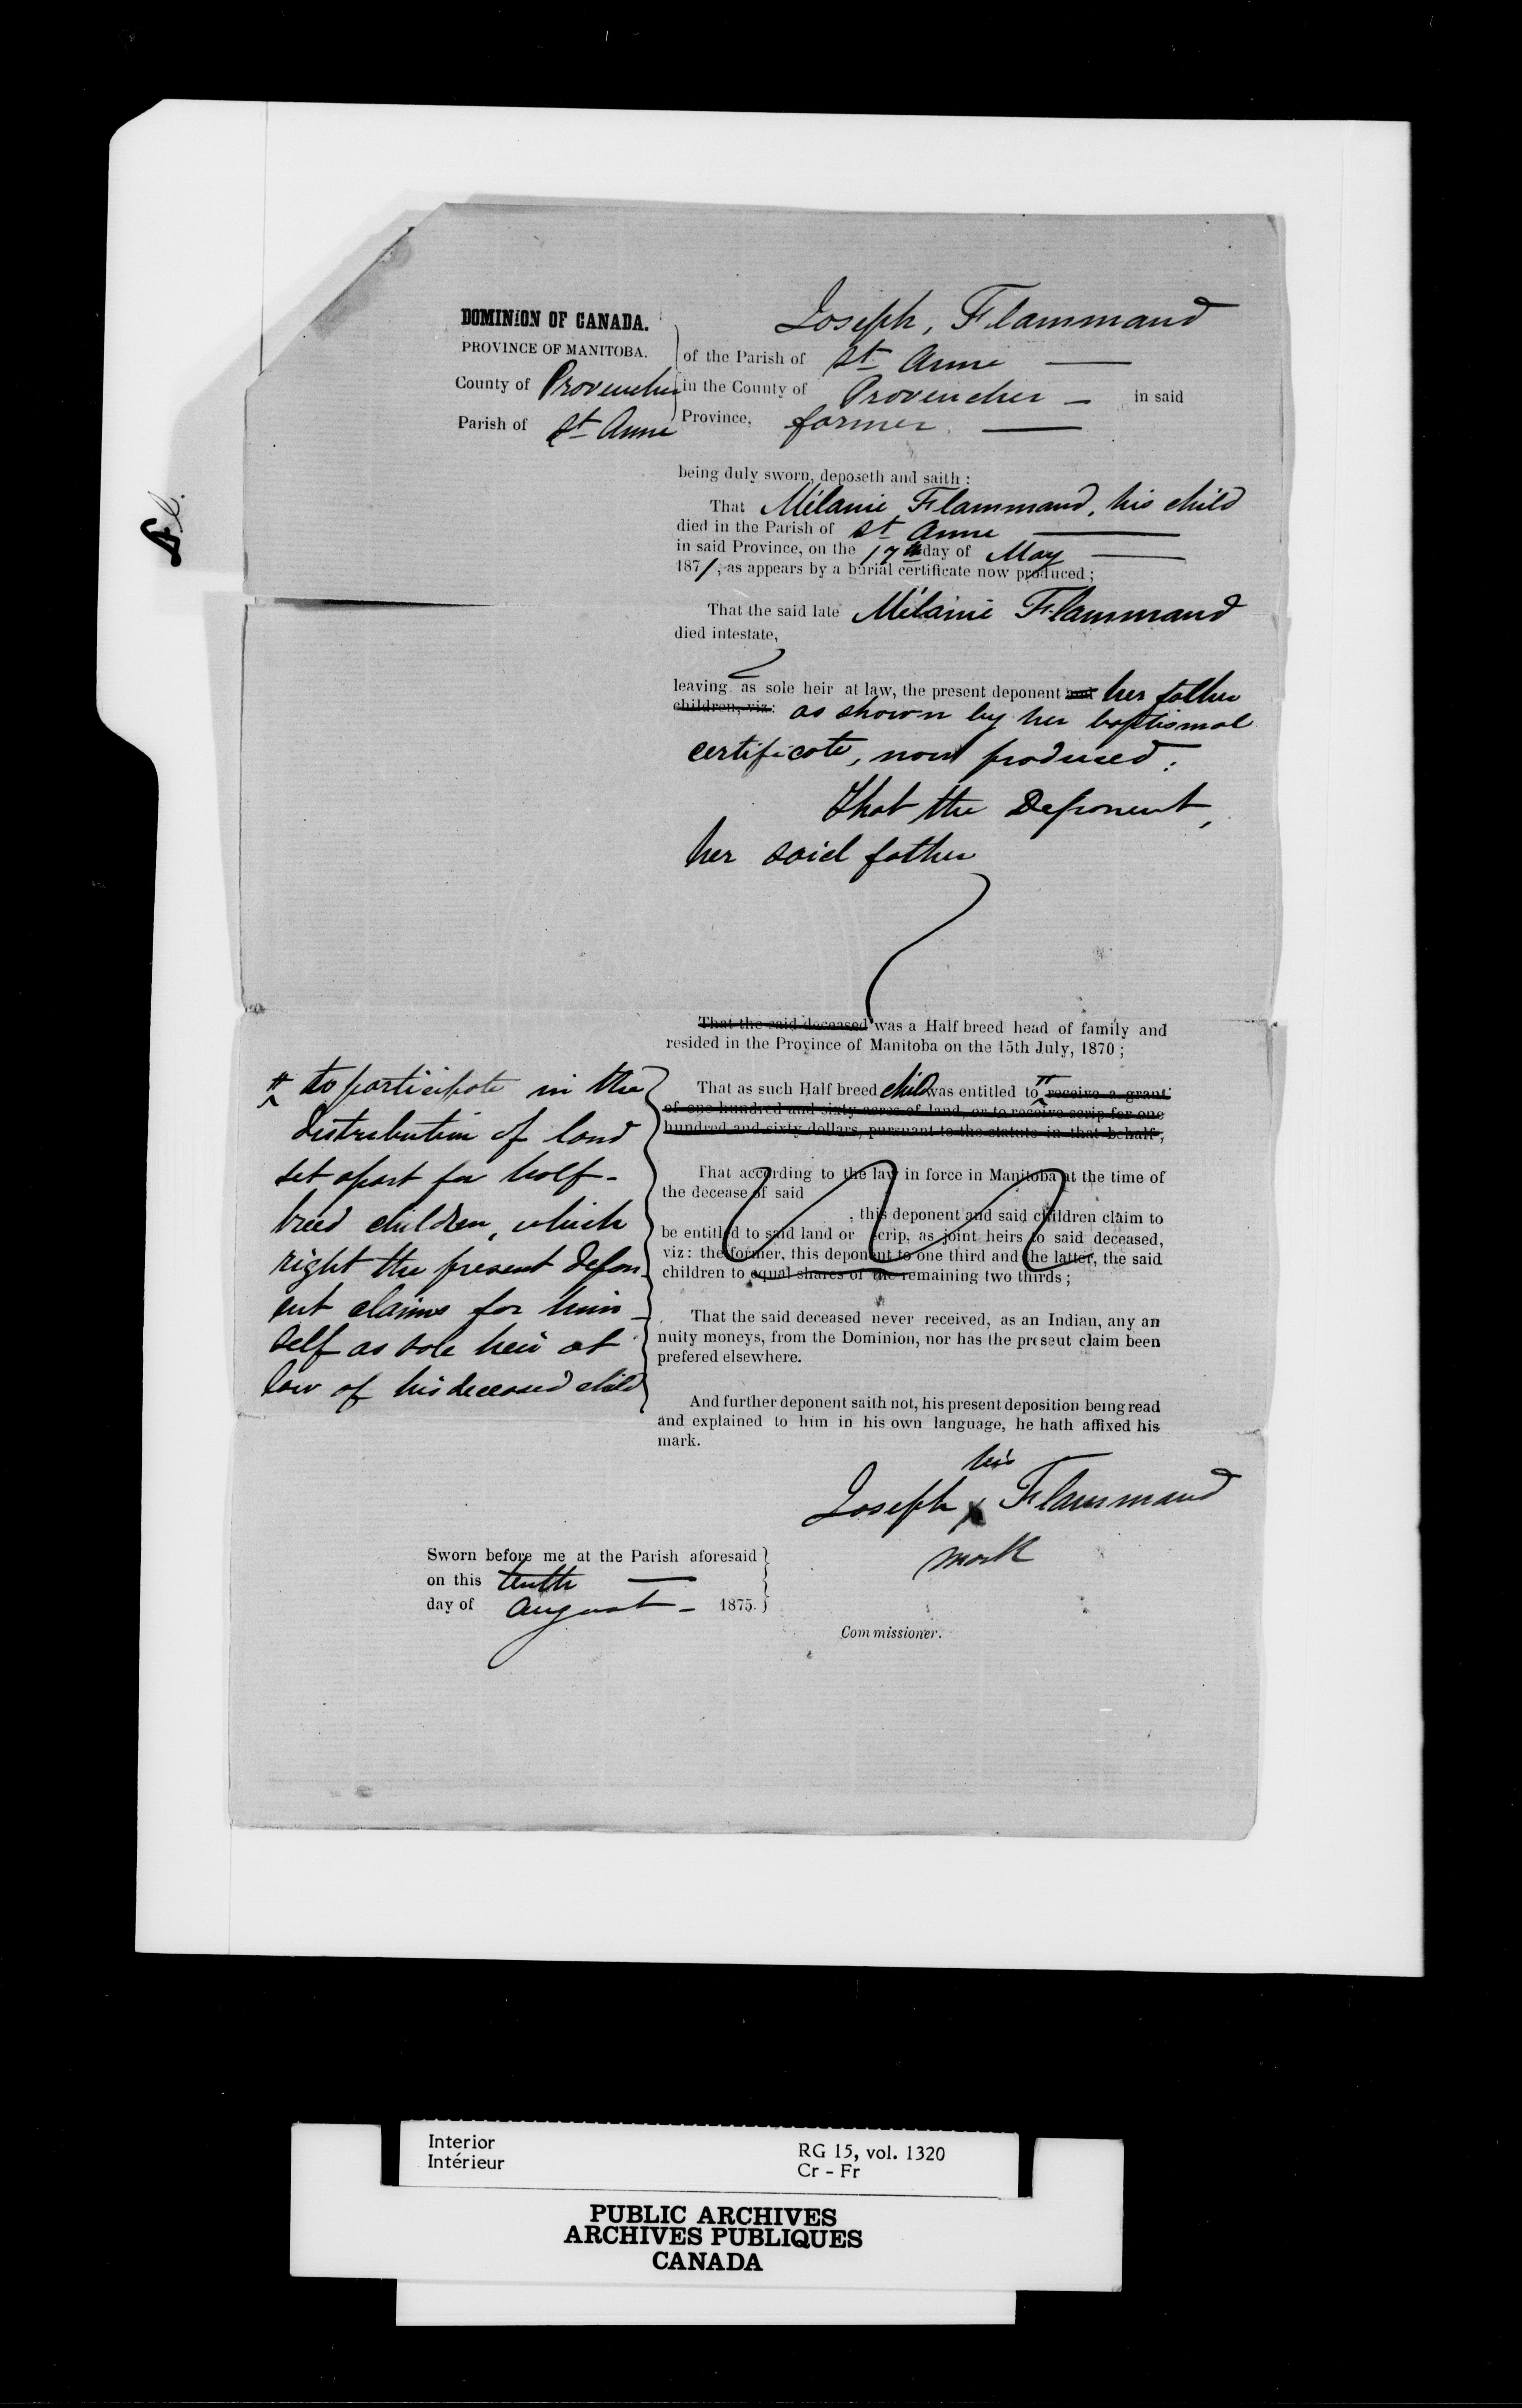 DOMINION OF CANADA.
PROVINCE OF MANITOBA.
County of Provencher
Parish of St Anne
Joseph, Flammand
of the Parish of St Anne
in the County of Provencher in said
Province, farmer
being duly sworn, deposeth and saith:
That Mélanie Flammand, his child
died in the Parish of St Anne
in said Province, on the 17th day of May
1871, as appears by a burial certificate now produced;
That the said late Mélanie Flammand
died intestate,
leaving as sole heir at law, the present deponent and her father
children, viz: as shown by her baptismal
certificate, now produced;
That the Deponent,
her said father
That the said deceased was a Half breed head of family and
resided in the Province of Manitoba on the 15th July, 1870;
That as such Half breed child was entitled to receive a grant
of one hundred and sixty acres of land, or to receive scrip for one
hundred and sixty dollars, pursuant to the statute in that behalf;
to participate in the
distribution of land
set apart for half-
breed children, which
right the present depon-
ent claims for him-
self as sole heir at
law of his deceased child
That according to the law in force in Manitoba at the time of
the decease of said
, this deponent and said children claim to
be entitled to said land or scrip, as joint heirs to said deceased,
viz: the former, this deponent to one third and the latter, the said
children to equal shares of the remaining two thirds;
That the said deceased never received, as an Indian, any an
nuity moneys, from the Dominion, nor has the present claim been
prefered elsewhere.
And further deponent saith not, his present deposition being read
and explained to him in his own language, he hath affixed his
mark.
his
Joseph x Flammand
mark
Sworn before me at the Parish aforesaid
on this tenth
day of August 1875.
Commissioner.
Interior
Intérieur
RG 15, vol. 1320
Cr - Fr
PUBLIC ARCHIVES
ARCHIVES PUBLIQUES
CANADA